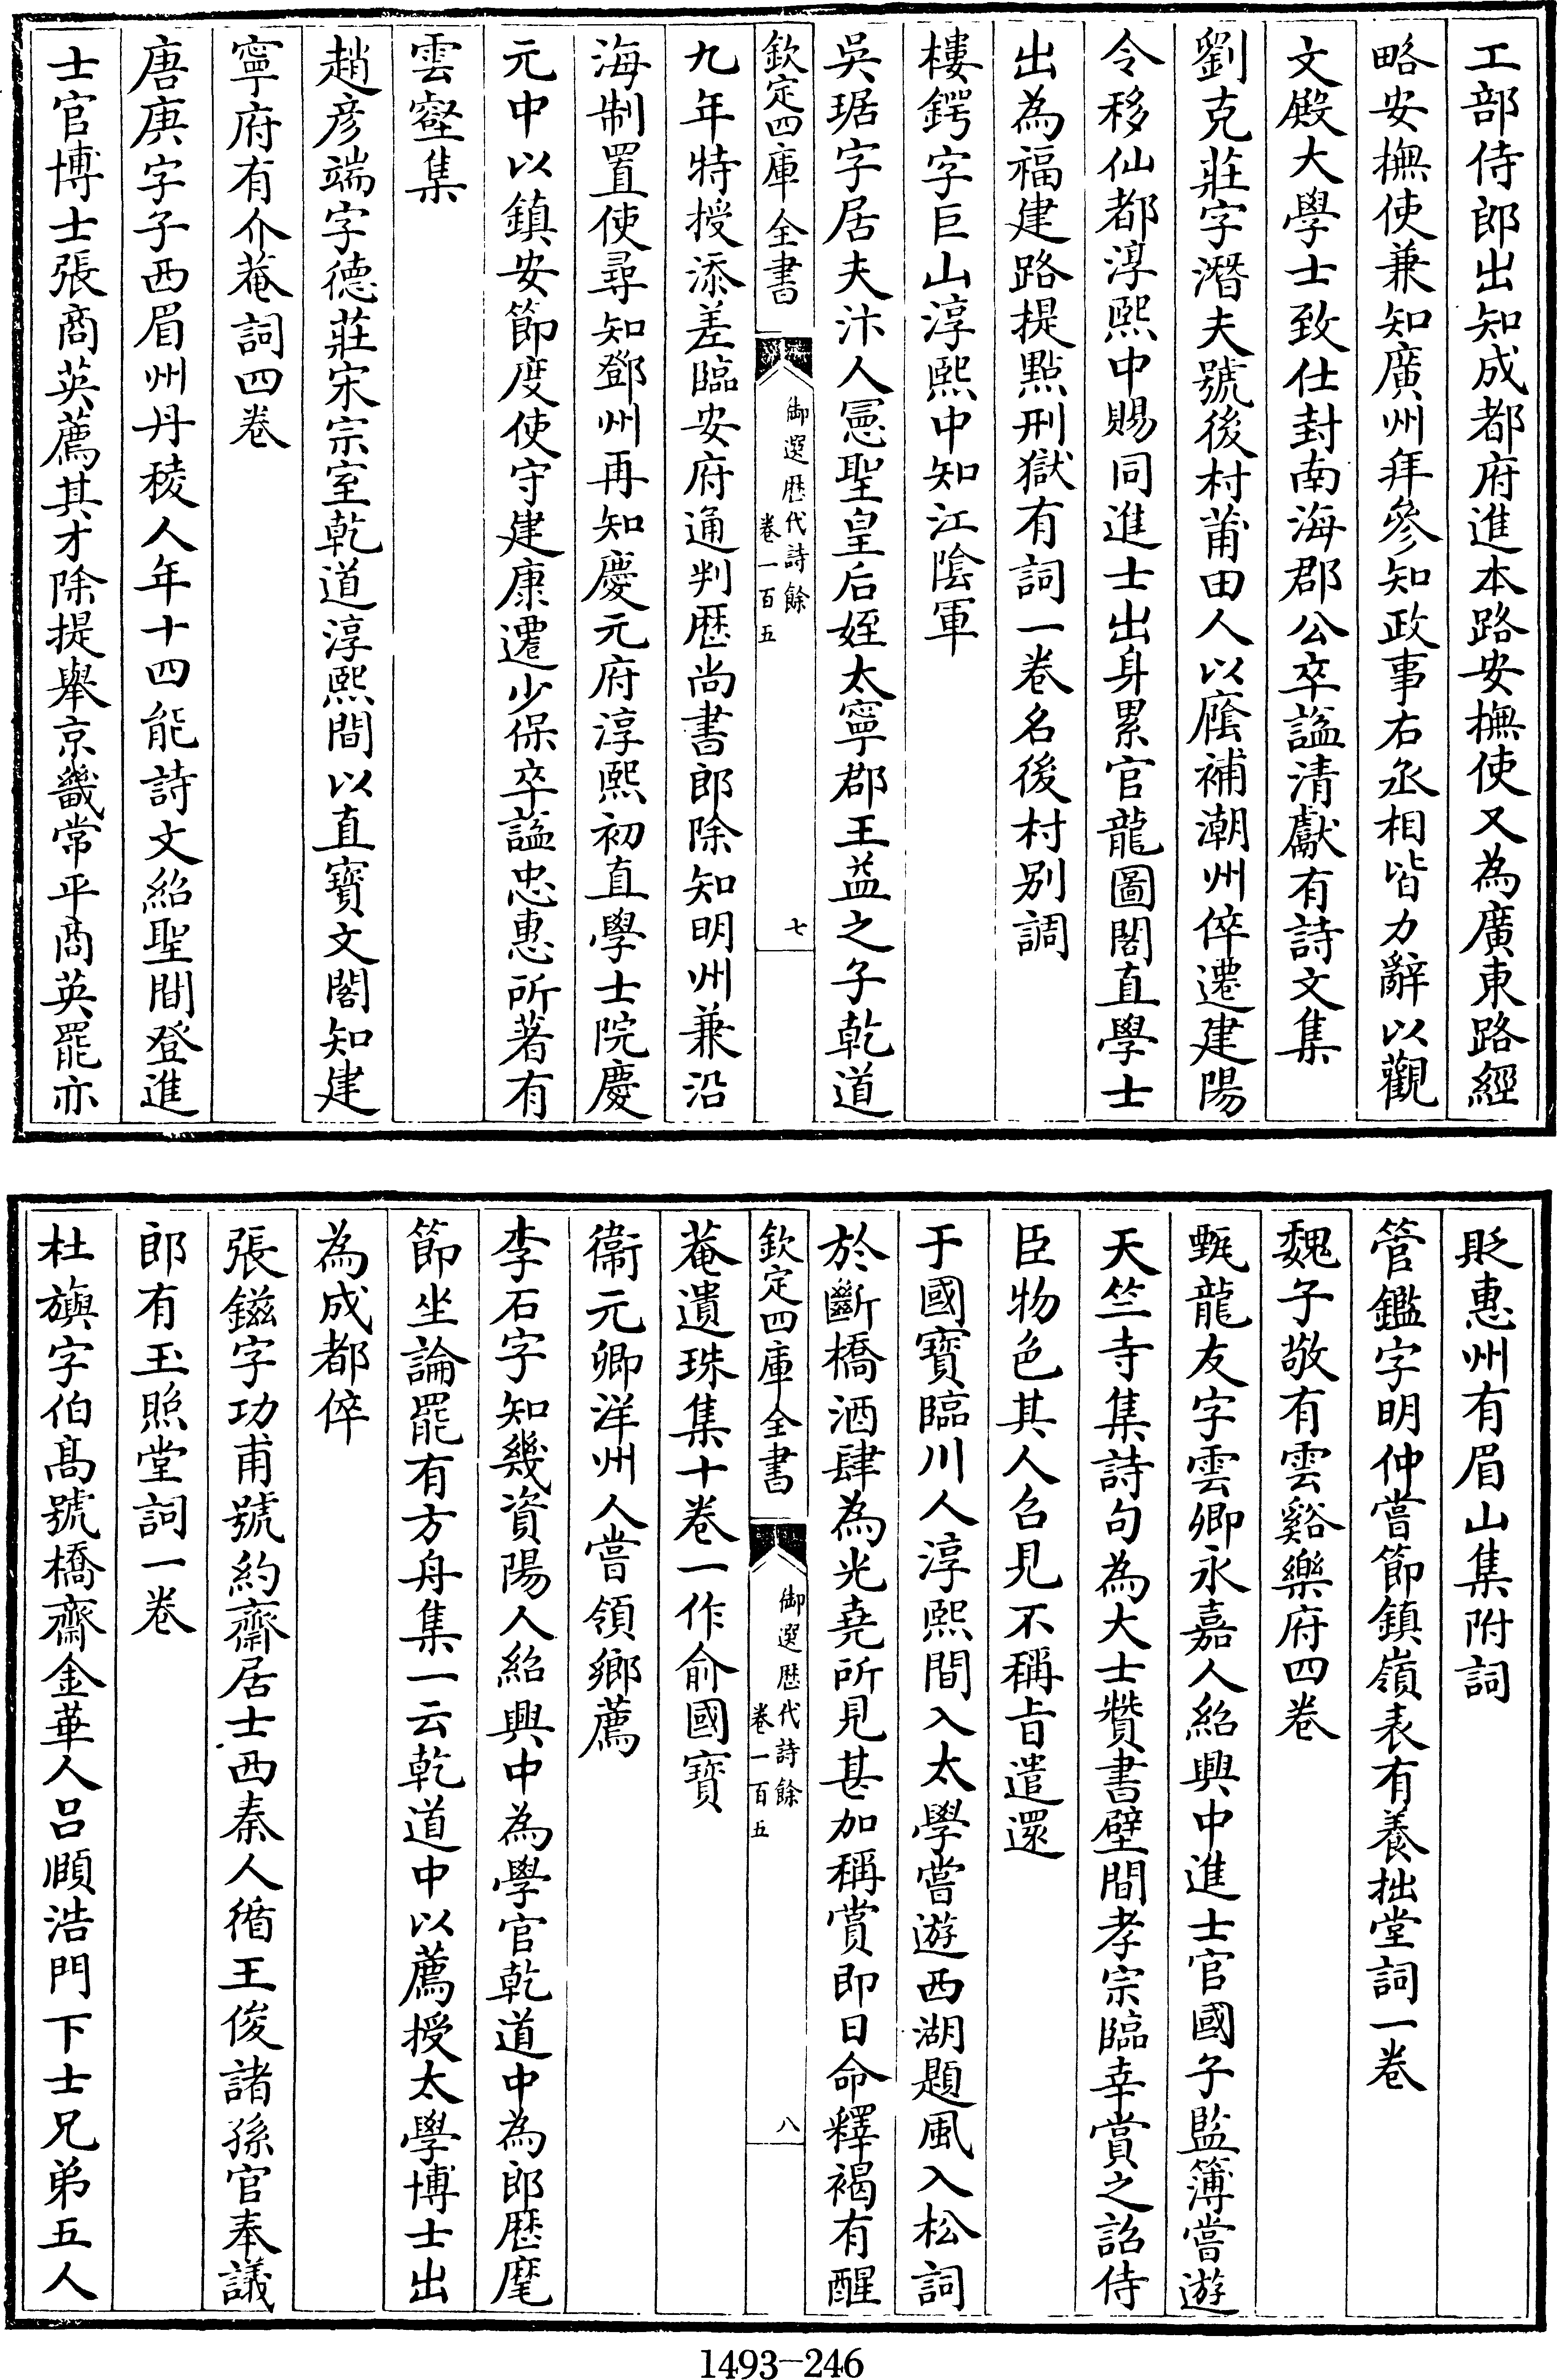 工部侍郎出知成都府進本路安撫使又為廣東路經
略安撫使兼知廣州拜參知政事右丞相皆力辭以觀
文殿大學士致仕封南海郡公卒謚清獻有詩文集
劉克莊字潛夫號後村莆田人以廕補潮州倅遷建陽
令移仙都淳熙中賜同進士出身累官龍圖閣直學士
出為福建路提點刑獄有詞一卷名後村別調
樓鍔字巨山淳熙中知江陰軍
吳琚字居夫汴人憲聖皇后姪太寧郡王益之子乾道
欽定四庫全書
御選歷代詩餘
卷一百五
七
九年特授添差臨安府通判歷尚書郎除知明州兼沿
海制置使尋知鄧州再知慶元府淳熙初直學士院慶
元中以鎮安節度使守建康遷少保卒謚忠惠所著有
雲壑集
趙彥端字德莊宋宗室乾道淳熙間以直寶文閣知建
寧府有介菴詞四卷
唐庚字子西眉州丹稜人年十四能詩文紹聖間登進
士官博士張商英薦其才除提舉京畿常平商英罷亦
貶惠州有眉山集附詞
管鑑字明仲嘗節鎮嶺表有養拙堂詞一卷
魏子敬有雲谿樂府四卷
甄龍友字雲卿永嘉人紹興中進士官國子監簿嘗遊
天竺寺集詩句為大士贊書壁間孝宗臨幸賞之詔侍
臣物色其人召見不稱旨遣還
于國寶臨川人淳熙間入太學嘗遊西湖題風入松詞
於斷橋酒肆為光堯所見甚加稱賞即日命釋褐有醒
欽定四庫全書
御選歷代詩餘
卷一百五
八
菴遺珠集十卷一作俞國寶
衞元卿洋州人嘗領鄉薦
李石字知幾資陽人紹興中為學官乾道中為郎歷麾
節坐論罷有方舟集一云乾道中以薦授太學博士出
為成都倅
張鎡字功甫號約齋居士西秦人循王俊諸孫官奉議
郎有玉照堂詞一卷
杜旟字伯高號橋齋金華人呂頤浩門下士兄弟五人
1493-246